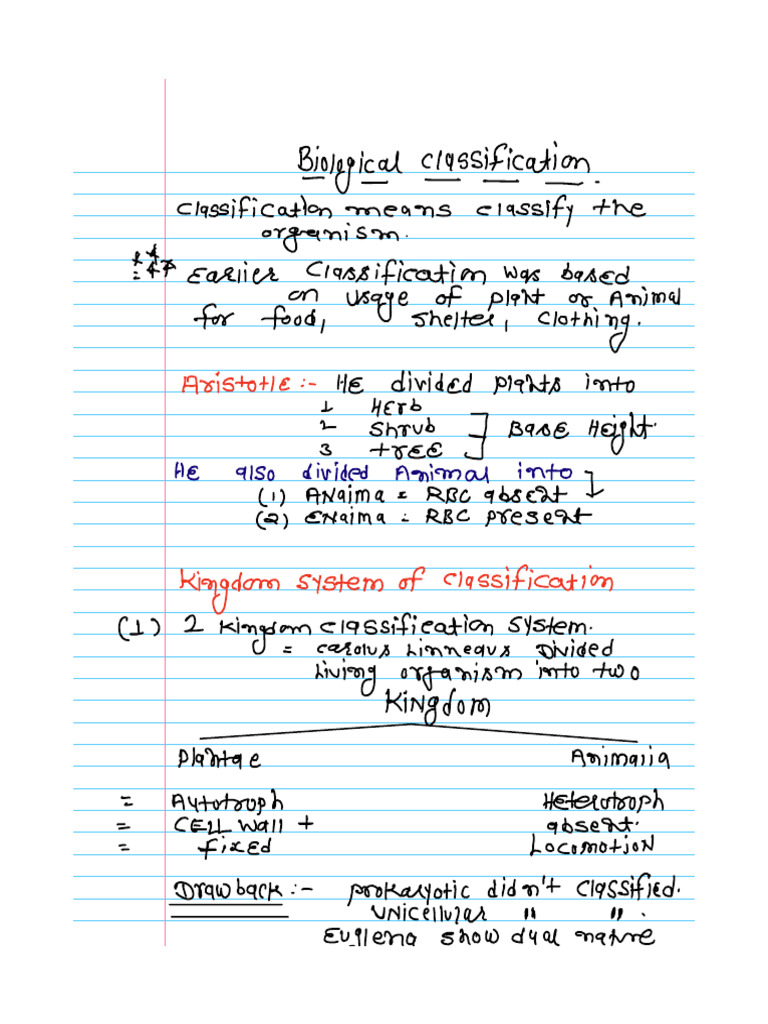 Biological classification.
classification means classify the
organism.
Earlier Classification was based
on usage of plant or Animal
for food, shelter, clothing.
Aristotle :- HE divided plants into
1 HErb
2 Shrub ] BasE Height.
3 trEE
HE also divided Animal into
(1) ANaima = RBC absent
(2) ENaima = RBC present
Kingdom system of classification
(1) 2 kingdom classification system.
= carolus Linneaus Divided
Living organism into two
KiNgdom
plantae Animalia
= Autotroph Heterotroph
= CELL wall + absent.
= fixed Locomotion
Drawback :- prokaryotic didn't classified.
UNicellular " " .
Euglena show dual nature